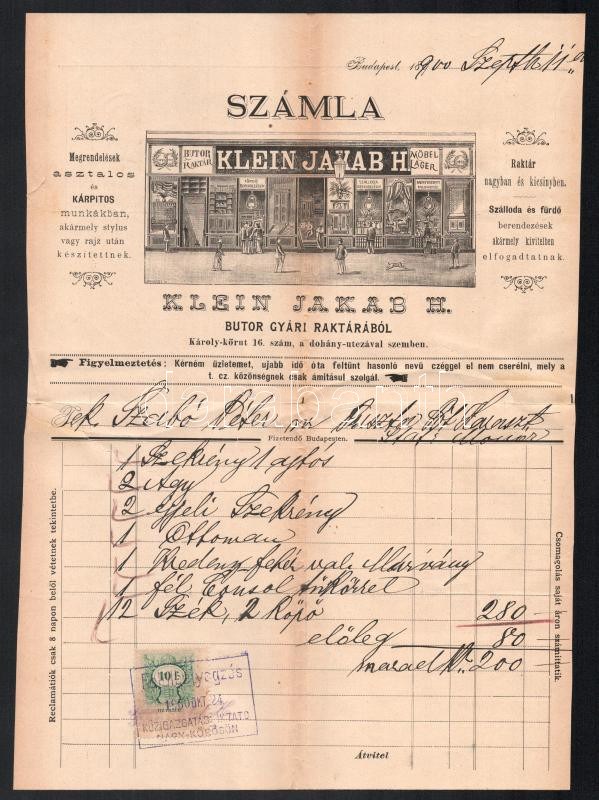 Budapest, 1900 Szepth 11
SZÁMLA
Megrendelések
asztalos
és
KÁRPITOS
munkákban,
akármely stylus
vagy rajz után
készítettnek.
BUTOR RAKTÁR
KLEIN JAKAB H.
MÖBEL LAGER
Raktár
nagyban és kicsinyben.
Szálloda és fürdő
berendezések
akármely kivitelben
elfogadtatnak.
KLEIN JAKAB H.
BUTOR GYÁRI RAKTÁRÁBÓL
Károly-körut 16. szám, a dohány-utczával szemben.
Figyelmeztetés: Kérném üzletemet, ujabb idő óta feltünt hasonló nevü czéggel el nem cserélni, mely a
t. cz. közönségnek csak ámitásul szolgál.
Tek. Szabó Péter
Fizetendő Budapesten.
1 Szekrény 1 ajtós
2 Agy
2 éjjeli Szekrény
1 Ottoman
1 Kredenz fehér val. Márvány
1 fél Consol tükörrel
12 Szek, 2 Köpő 280
előleg 80
marad 200
Reclamátiók csak 8 napon belől vétetnek tekintetbe.
Csomagolás saját áron számíttatik.
10 f
1900 OKT. 24
NAGY-KŐRÖSÖN
Átvitel
darabanth